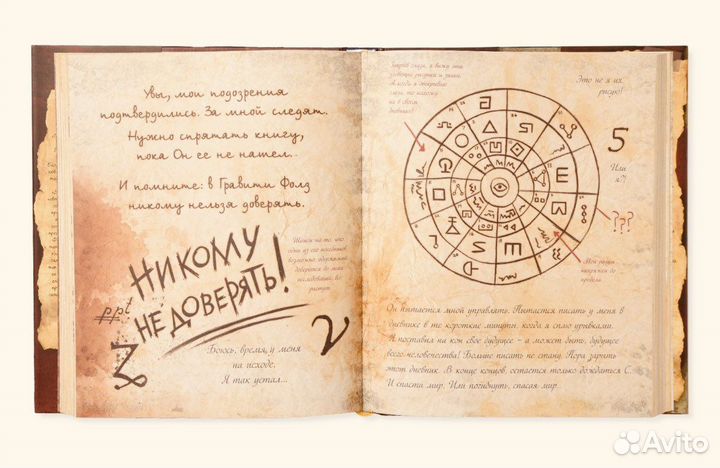 Увы, мои подозрения
подтвердились. За мной следят.
Нужно спрятать книгу,
пока Он ее не нашел..
И помните: в Гравити Фолз
никому нельзя доверять.
НИКОМУ
НЕ ДОВЕРЯТЬ!
Боюсь, время у меня
на исходе.
Я так устал...
2
Это не я их
рисую!
5
Или
я?!
???
Он пытается мной управлять. Пытается писать у меня в
дневнике в те короткие минуты, когда я сплю урывками.
Я поставил на кон свое будущее – а может быть, будущее
всего человечества! Больше писать не стану. Пора зарыть
этот дневник. В конце концов, остается только дождаться С.
И спасти мир. Или погибнуть, спасая мир.
Avito